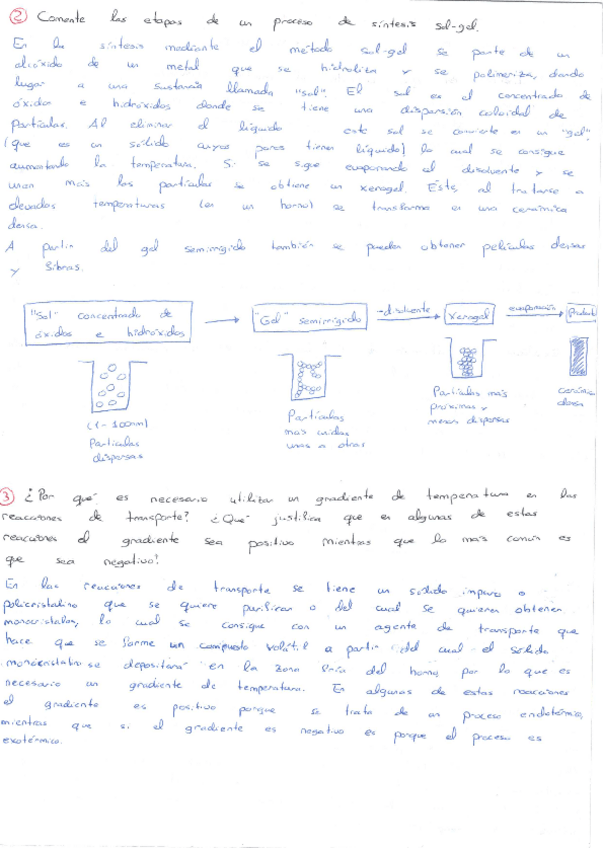 ② Comente las etapas de un proceso de síntesis sol-gel.
En la síntesis mediante el método sol-gel se parte de un
alcóxido de un metal que se hidroliza y se polimeriza, dando
lugar a una sustancia llamada "sol". El sol es el concentrado de
óxidos e hidróxidos donde se tiene una dispersión coloidal de
partículas. Al eliminar el líquido este sol se convierte en un "gel"
(que es un sólido cuyos poros tienen líquido) lo cual se consigue
aumentando la temperatura. Si se sigue evaporando el disolvente y se
unan más las partículas se obtiene un xerogel. Este, al tratarse a
elevadas temperaturas (en un horno) se transforma en una cerámica
densa.
A partir del gel semirrígido también se pueden obtener películas densas
y fibras.
"Sol" concentrado de
óxidos e hidróxidos
"Gel" semirrígido
-disolvente
xerogel
evaporación
(1-100nm)
Partículas
dispersas
Partículas
más unidas
unas a otras
Partículas más
próximas y
menos dispersas
cerámica
densa
③ ¿Por qué es necesario utilizar un gradiente de temperatura en las
reacciones de transporte? ¿Qué justifica que en algunas de estas
reacciones el gradiente sea positivo mientras que lo más común es
que sea negativo?
En las reacciones de transporte se tiene un sólido impuro o
policristalino que se quiere purificar o del cual se quieren obtener
monocristales, lo cual se consigue con un agente de transporte que
hace que se forme un compuesto volátil a partir del cual el sólido
monocristalino se depositará en la zona fría del horno, por lo que es
necesario un gradiente de temperatura. En algunas de estas reacciones
el gradiente es positivo porque se trata de un proceso endotérmico,
mientras que si el gradiente es negativo es porque el proceso es
exotérmico.